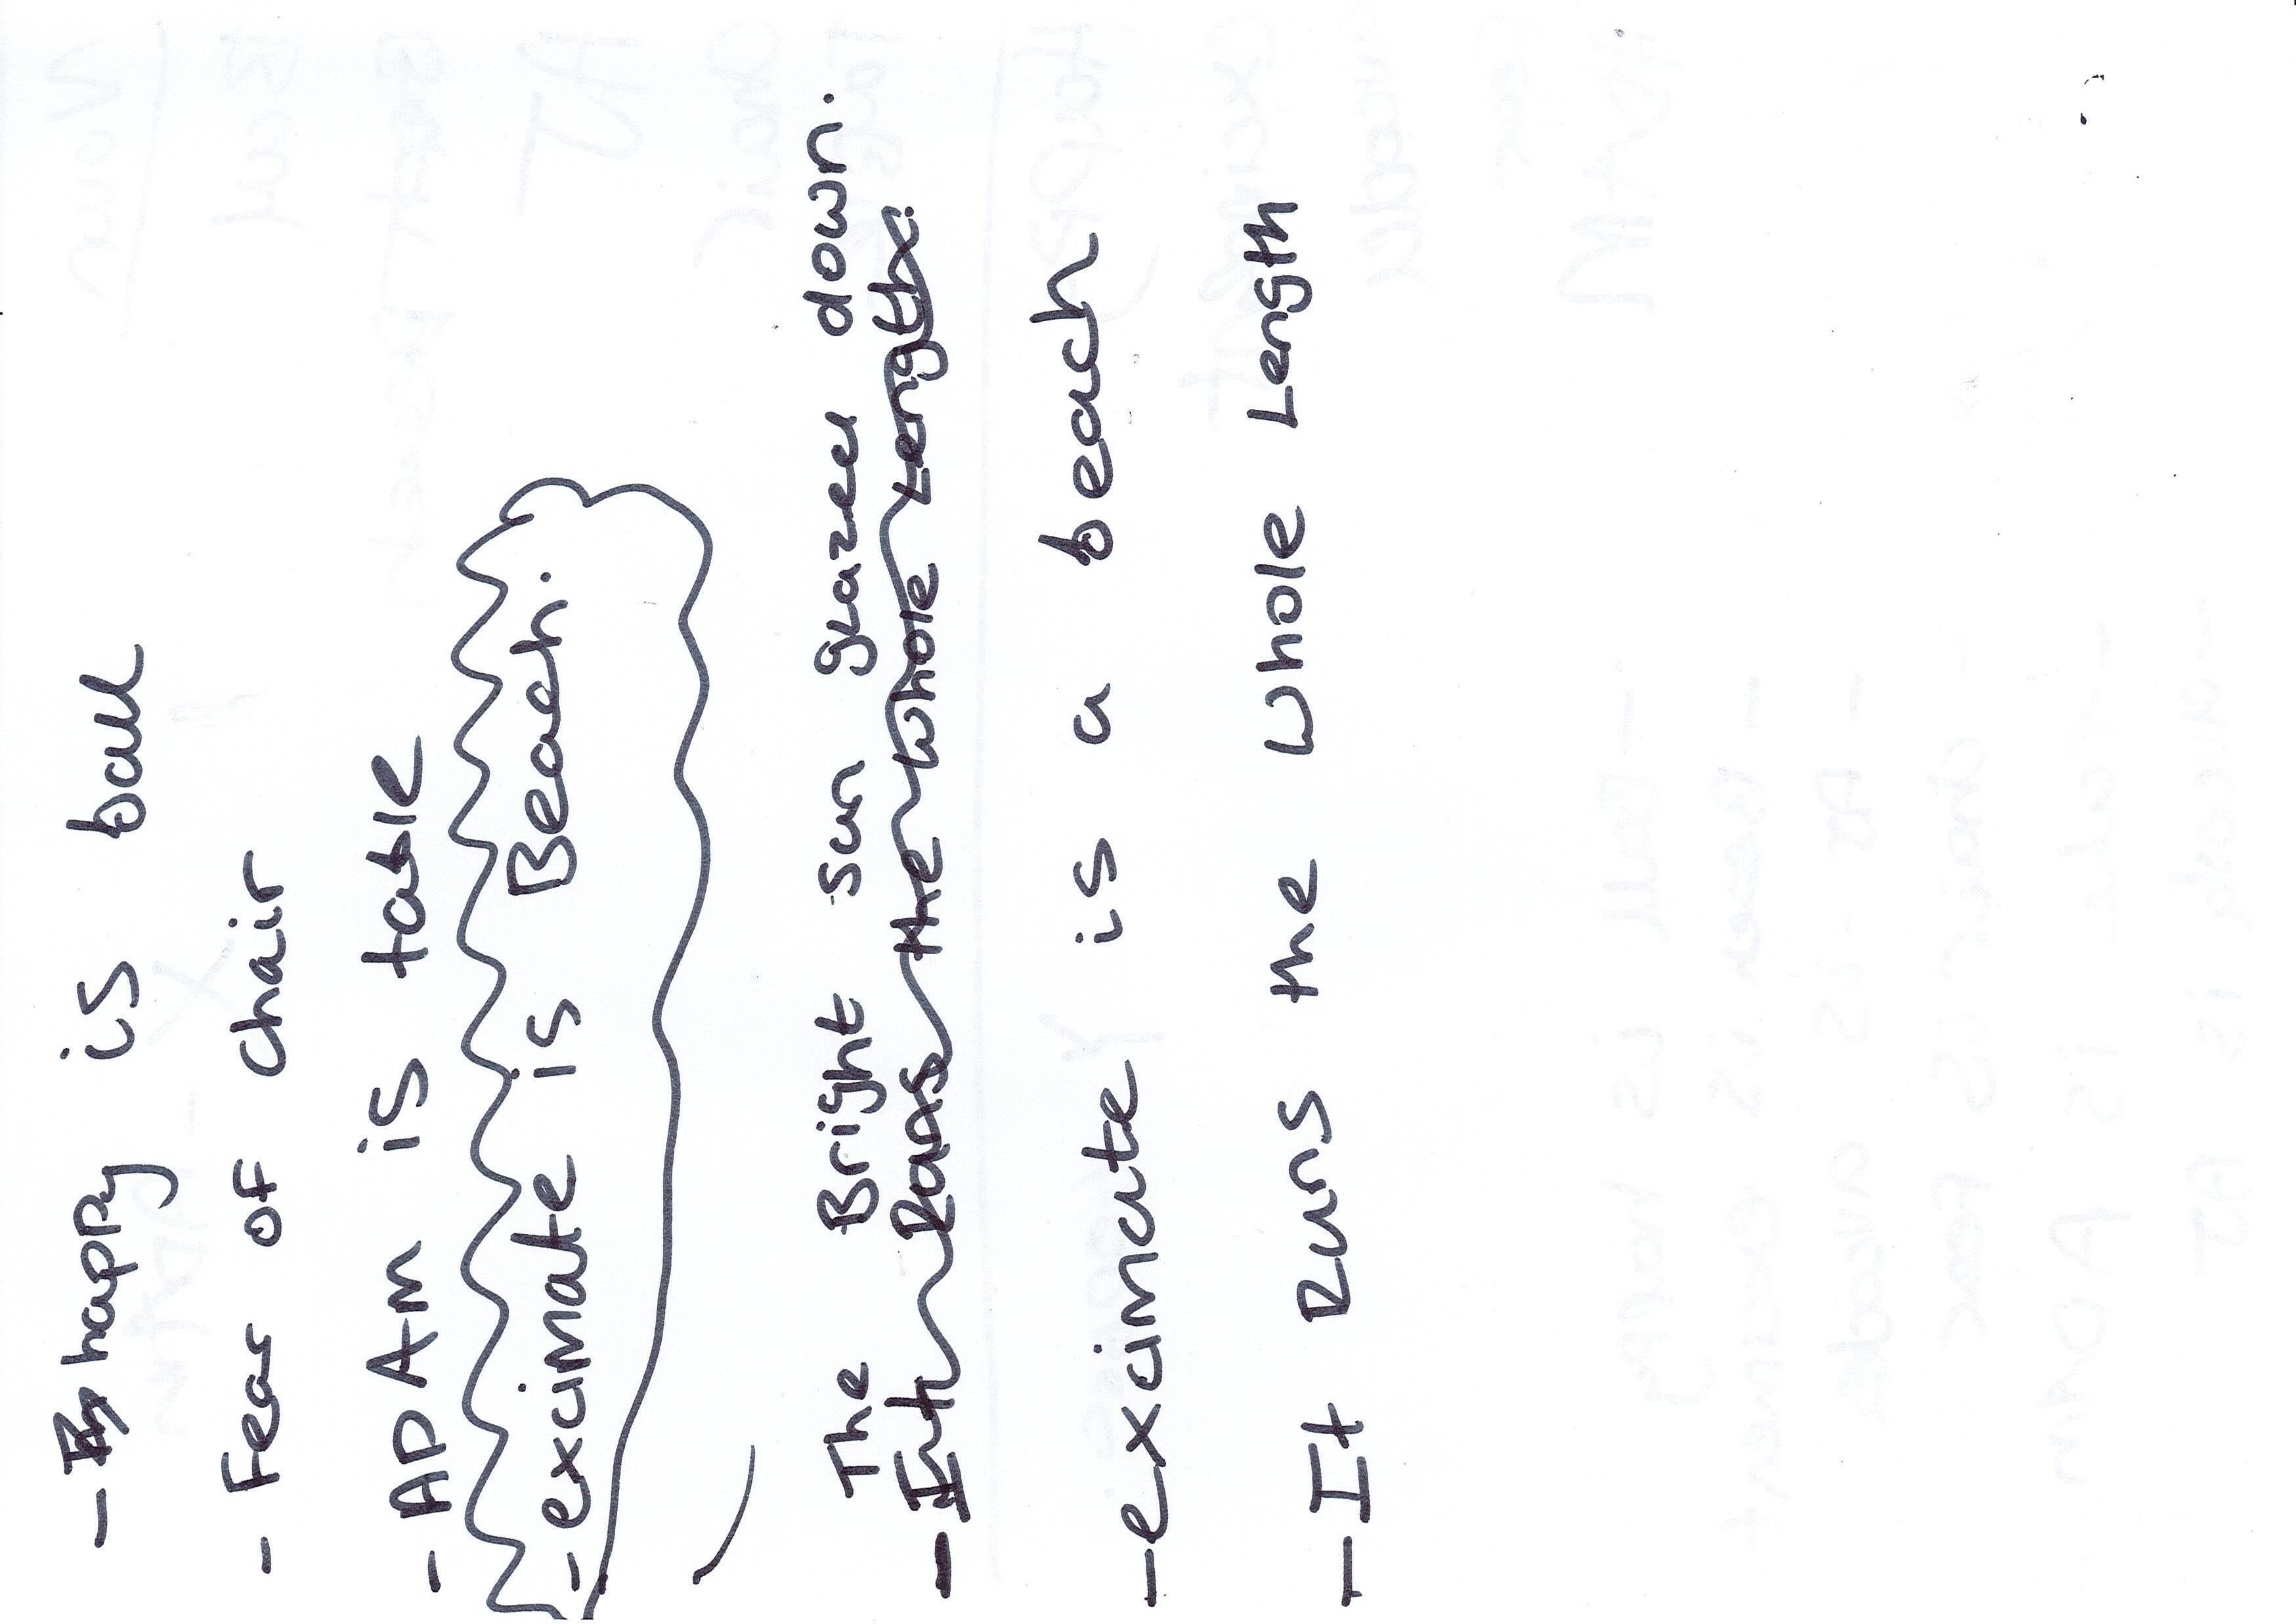 - happy is ball
- Fear of chair
- ADAm is table
- excimate is Beach.
The Bright sun gluzed down.
- It Runs the whole Length.
- excimate is a beach
- It Runs the whole Length